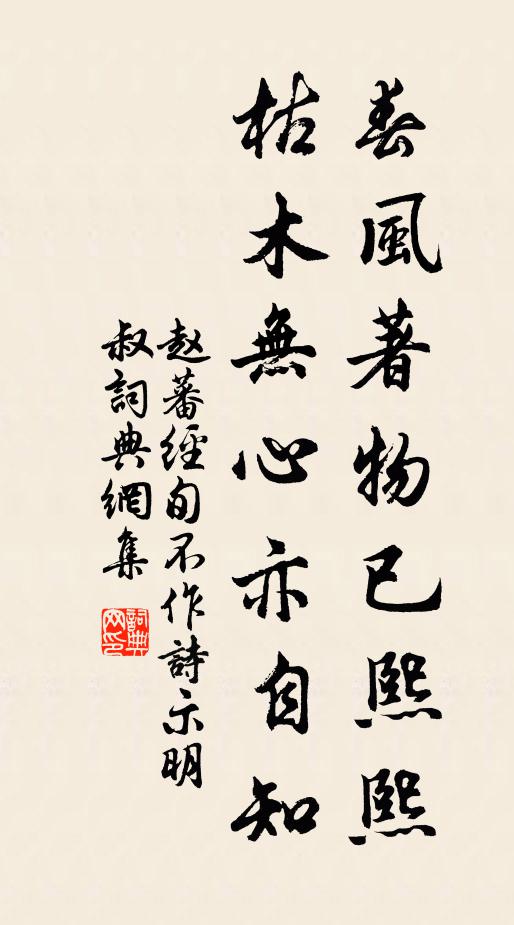 春風著物已熙熙
枯木無心亦自知
赵蕃經旬不作詩示明
叔詞典網集
詞典
网印